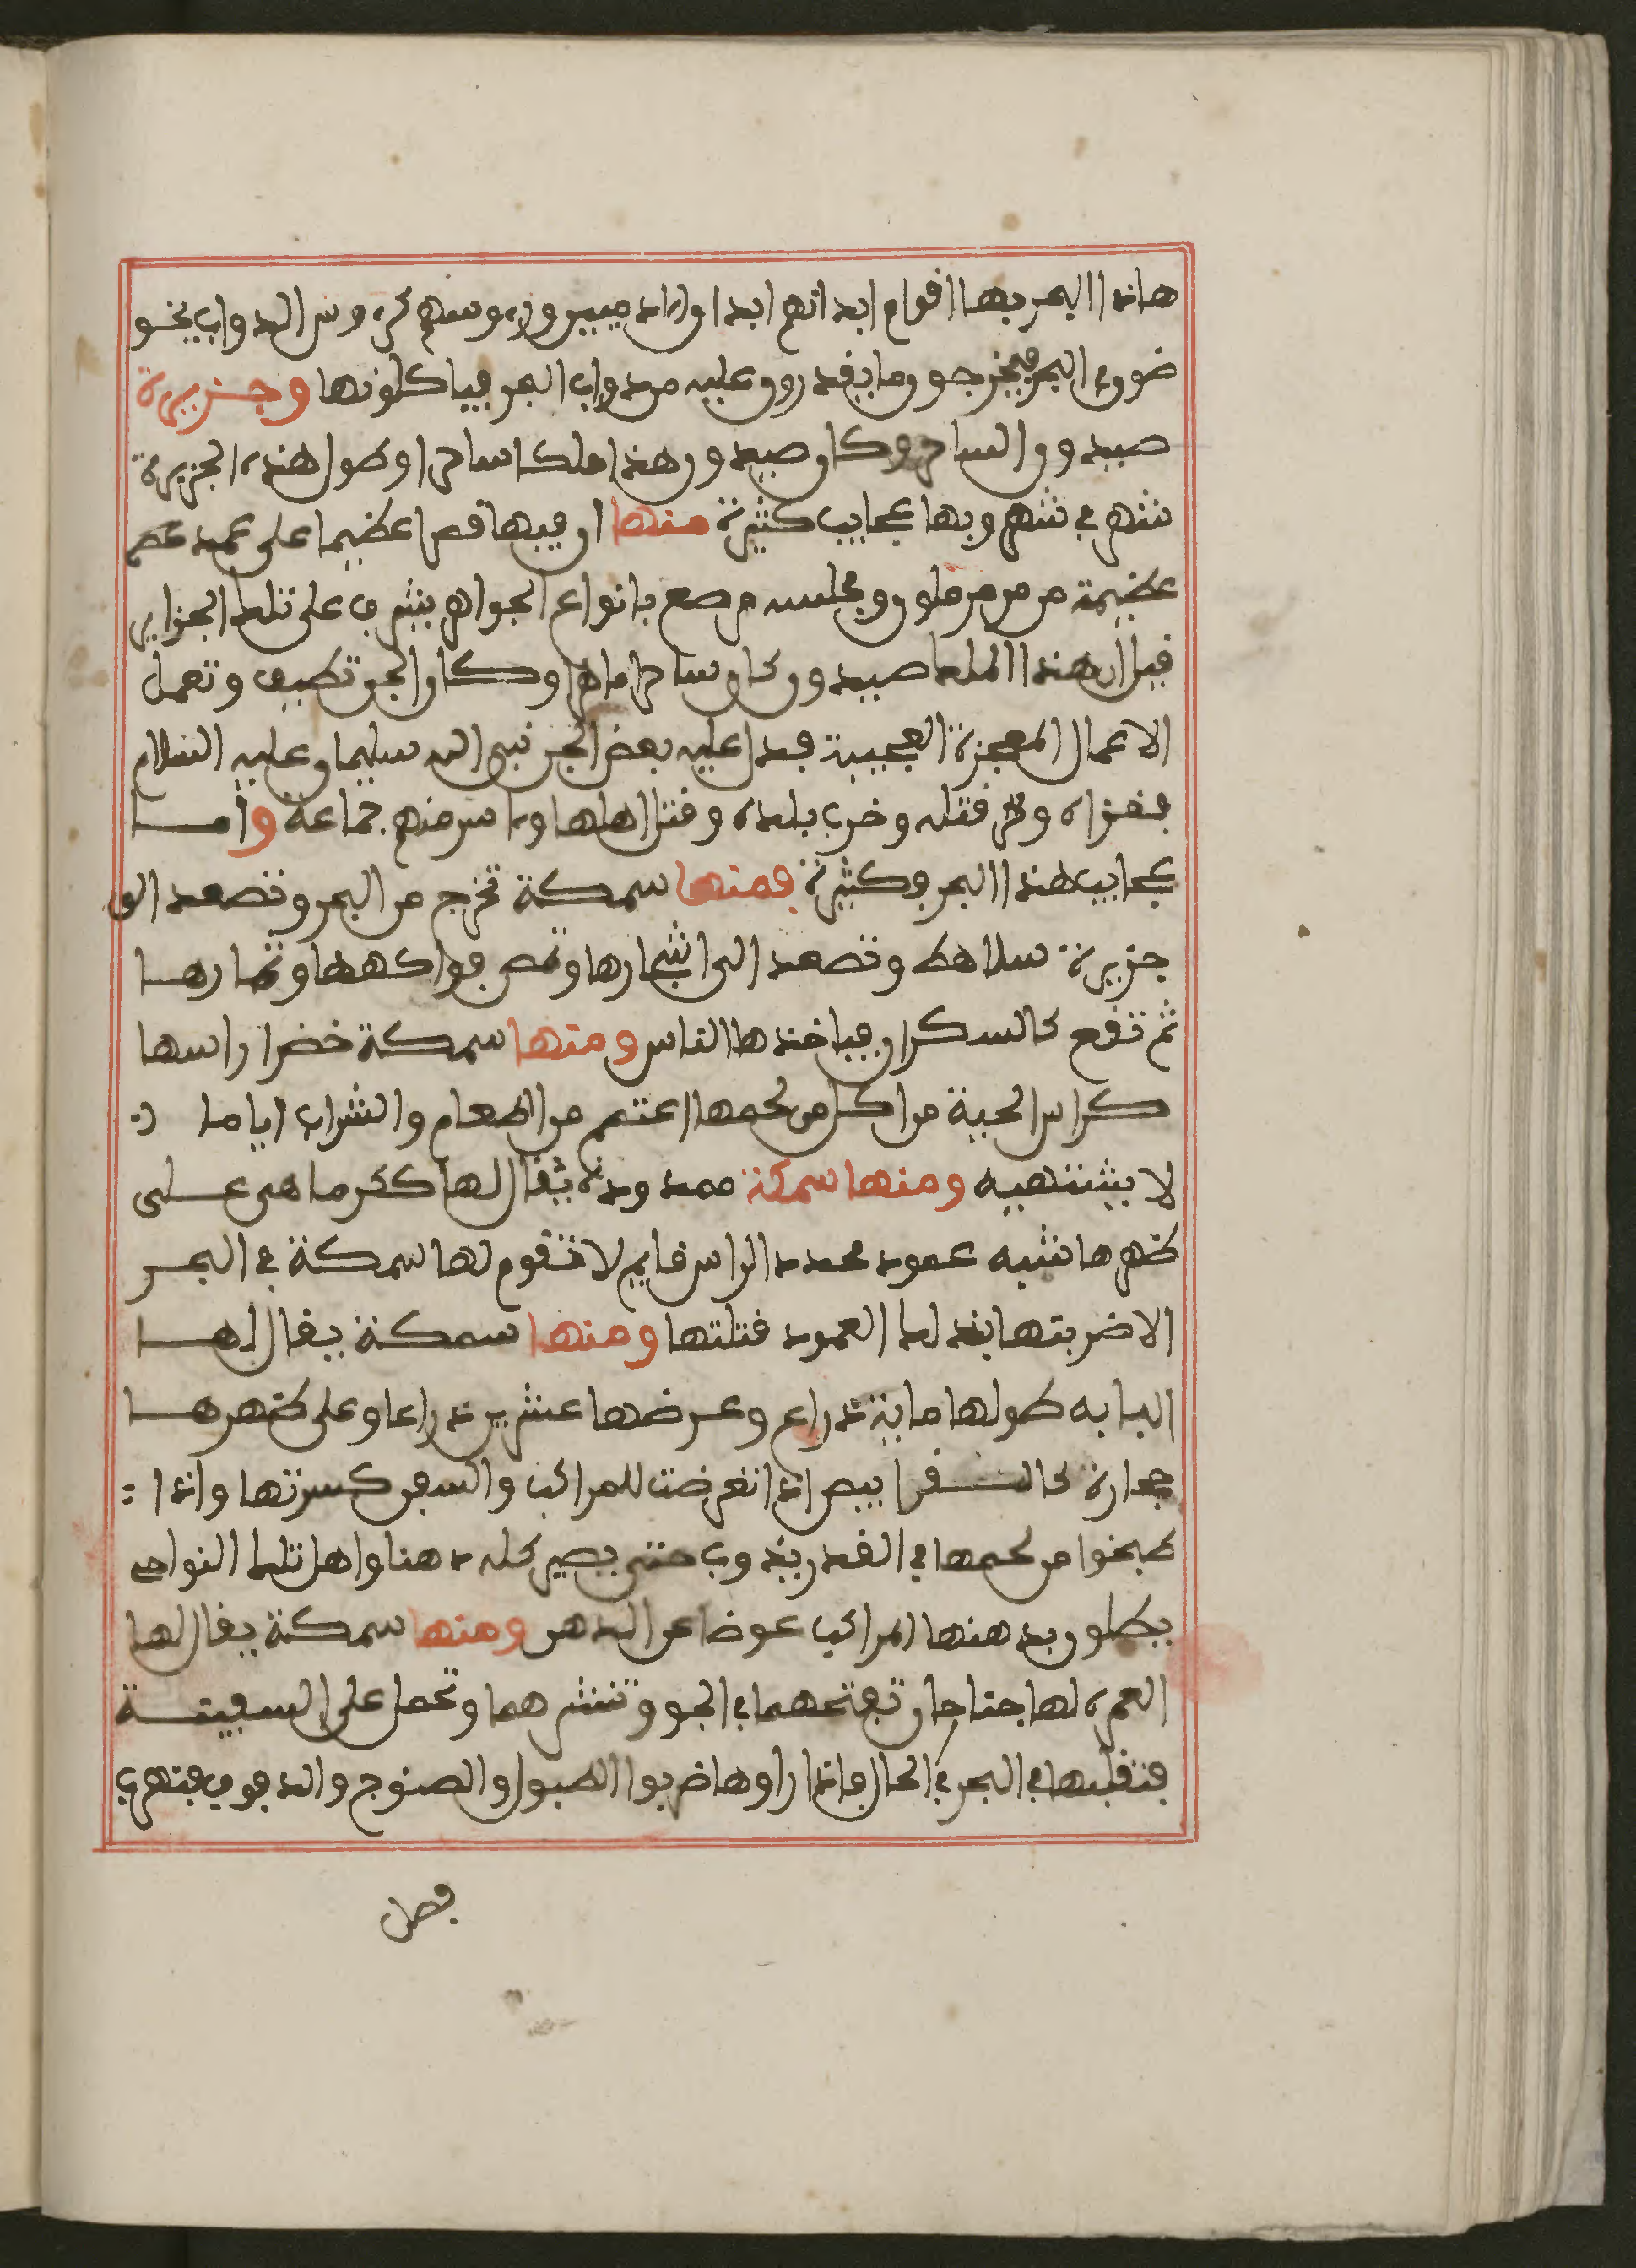 هاذا البحر بها اقوام ابدانهم ابدان ادميين ورءوسهم كرءوس الدواب يخو
ضون في البحر فيخرجون ما يقدرون عليه من دواب البحر فياكلونها وجزيرة
صيدون الساحر وكان صيدون هذا ملكا ساحرا وطول هذه الجزيرة
شهر في شهر وبها عجايب كثيرة منها ان فيها قصرا عظيما على عمد
عظيمة من مرمر ملون ومجلسه مرصع بانواع الجواهر يشرف على تلك الجزاير
قيل ان هذا الملك صيدون كان ساحرا ماهرا وكان الجن تطيف وتعمل
الاعمال المعجزة العجيبة فدل عليه بعض الجن نبي الله سليمان عليه السلام
فغزاه وقتله وخرب بلده وقتل اهلها واسر منهم جماعة واما
عجايب هذا البحر فكثيرة فمنها سمكة تخرج من البحر وتصعد الى
جزيرة سلاهط وتصعد الى اشجارها وتمص فواكهها وثمارها
ثم تقع كالسكران فياخذها الناس ومنها سمكة خضرا راسها
كراس الحية من اكل من لحمها اعتصم من الطعام والشراب اياما
لا يشتهيه ومنها سمكة ممدودة يقال لها كرماهى على
ظهرها شبه عمود محدد الراس قايم لا تقوم لها سمكة في البحر
الا ضربتها بذلك العمود فتلتها ومنها سمكة يقال لها
البابه طولها ماية ذراع وعرضها عشرين ذراعا وعلى ظهرها
حجارة كالشقرا بيص اذا تعرضت للمراكب والسفن كسرتها واذا
طبخوا من لحمها في القدر يذوب حتى يصير كله دهنا واهل تلك النواحى
يطلون بدهنها المراكب عوضا عن الدهن ومنها سمكة يقال لها
العمرة لها جناحان تفتحهما في الجو وتنشرهما وتحمل على السفينة
فتقلبها في البحر في الحال فاذا راوها ضربوا الطبول والصنوج والدفوف فتهرب
فصل